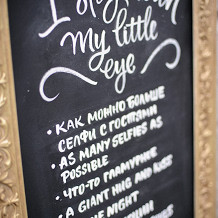 I
my little
eye
• КАК МОЖНО БОЛЬШЕ
СЕЛФИ С ГОСТЯМИ
• AS MANY SELFIES AS
POSSIBLE
• ЧТО-ТО ГЛАМУРНОЕ
• A GIANT HUG AND KISS
NIGHT